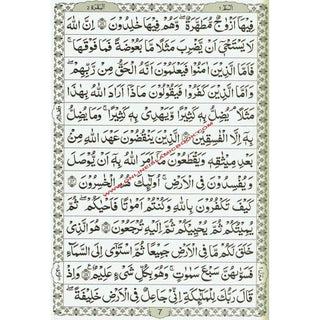 البقرة ٢
الٓمّٓ ١
فِيْهَاۤ اَزْوَاجٌ مُّطَهَّرَةٌ وَّهُمْ فِيْهَا خٰلِدُوْنَ اِنَّ اللّٰهَ
لَا يَسْتَحْيٖۤ اَنْ يَّضْرِبَ مَثَلًا مَّا بَعُوْضَةً فَمَا فَوْقَهَا
فَاَمَّا الَّذِيْنَ اٰمَنُوْا فَيَعْلَمُوْنَ اَنَّهُ الْحَقُّ مِنْ رَّبِّهِمْ
وَاَمَّا الَّذِيْنَ كَفَرُوْا فَيَقُوْلُوْنَ مَاذَاۤ اَرَادَ اللّٰهُ بِهٰذَا
مَثَلًا يُضِلُّ بِهٖ كَثِيْرًا وَّيَهْدِيْ بِهٖ كَثِيْرًا وَمَا يُضِلُّ
بِهٖۤ اِلَّا الْفٰسِقِيْنَ الَّذِيْنَ يَنْقُضُوْنَ عَهْدَ اللّٰهِ مِنْ
بَعْدِ مِيْثَاقِهٖ وَيَقْطَعُوْنَ مَاۤ اَمَرَ اللّٰهُ بِهٖۤ اَنْ يُّوْصَلَ
وَيُفْسِدُوْنَ فِي الْاَرْضِ اُولٰٓئِكَ هُمُ الْخٰسِرُوْنَ
كَيْفَ تَكْفُرُوْنَ بِاللّٰهِ وَكُنْتُمْ اَمْوَاتًا فَاَحْيَاكُمْ ثُمَّ
يُمِيْتُكُمْ ثُمَّ يُحْيِيْكُمْ ثُمَّ اِلَيْهِ تُرْجَعُوْنَ هُوَ الَّذِيْ
خَلَقَ لَكُمْ مَّا فِي الْاَرْضِ جَمِيْعًا ثُمَّ اسْتَوٰۤى اِلَى السَّمَآءِ
فَسَوّٰىهُنَّ سَبْعَ سَمٰوٰتٍ وَهُوَ بِكُلِّ شَيْءٍ عَلِيْمٌ وَاِذْ
قَالَ رَبُّكَ لِلْمَلٰٓئِكَةِ اِنِّيْ جَاعِلٌ فِي الْاَرْضِ خَلِيْفَةً
7